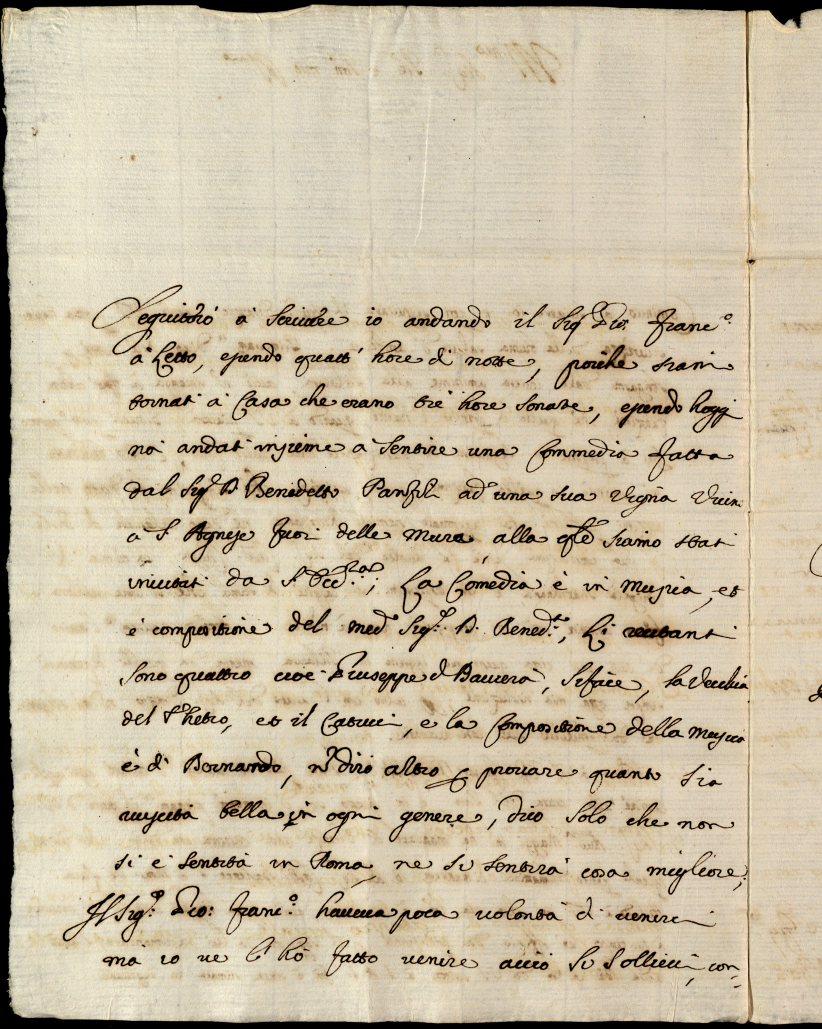 Seguitirò à scriuere io andando il Sig.r Gio: Franc.o
à Letto, essendo quatt' hore di notte, poiche siam
tornati à Casa che erano trè hore sonate, essendo hoggi
noi andati insieme à sentire una Commedia fatta
dal Sig.r D. Benedetto Panfili ad una sua Vigna Vicin
à S. Agnese fuori delle Mura alla q.le siamo stati
inuitati da S. Ecc.za; La Comedia è in Musica, et
è compositione del med.o Sig.r D. Bened.to, Li recitanti
sono quattro cioè Giuseppe d Bauiera, Siface, la Vecchia
del , et il Catucci, e la Compositione della Musica
è di Bernardo, nè dirò altro p prouare quanto sia
riuscita bella in ogni genere, dico solo che non
si è sentita in Roma, ne si sentirà cosa migliore;
Il Sig.r Gio: Franc.o haueua poca uolontà di uenirci
mà io ue l'hò fatto uenire acciò si sollieui, con-